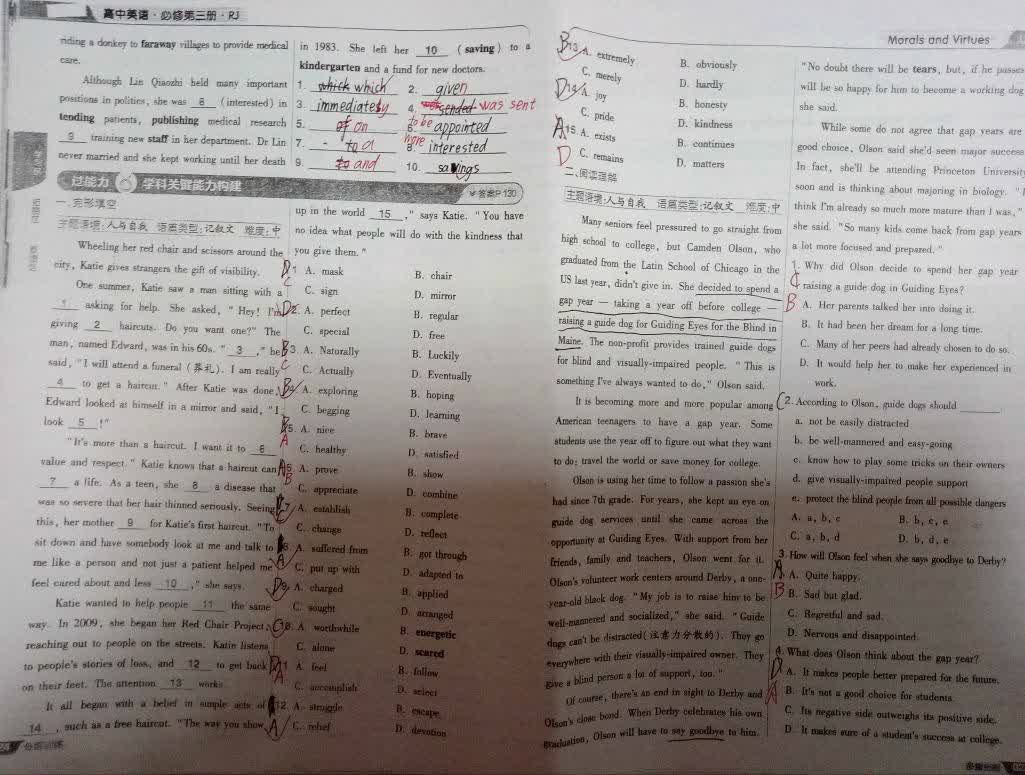 高中英语·必修第三册·RJ
riding a donkey to faraway villages to provide medical
care.
Although Lin Qiaozhi held many important
positions in politics, she was 8 (interested) in
tending patients, publishing medical research
9 training new staff in her department. Dr Lin
never married and she kept working until her death
in 1983. She left her 10 (saving) to a
kindergarten and a fund for new doctors.
1. which which 2. given
3. immediately 4. sended was sent
5. of on 6. to be appointed
7. to a 8. more interested
9. to and 10. savings
过能力 学科关键能力构建 答案P130
一、完形填空
主题语境:人与自我 语篇类型:记叙文 难度:中
Wheeling her red chair and scissors around the
city, Katie gives strangers the gift of visibility.
One summer, Katie saw a man sitting with a
1 asking for help. She asked, "Hey! I'm
giving 2 haircuts. Do you want one?" The
man, named Edward, was in his 60s. "3," he
said, "I will attend a funeral (葬礼). I am really
4 to get a haircut." After Katie was done,
Edward looked at himself in a mirror and said, "I
look 5!"
"It's more than a haircut. I want it to 6
value and respect." Katie knows that a haircut can
7 a life. As a teen, she 8 a disease that
was so severe that her hair thinned seriously. Seeing
this, her mother 9 for Katie's first haircut. "To
sit down and have somebody look at me and talk to
me like a person and not just a patient helped me
feel cared about and less 10," she says.
Katie wanted to help people 11 the same
way. In 2009, she began her Red Chair Project,
reaching out to people on the streets. Katie listens
to people's stories of loss, and 12 to get back
on their feet. The attention 13 works.
It all began with a belief in simple acts of
14, such as a free haircut. "The way you show
up in the world 15," says Katie. "You have
no idea what people will do with the kindness that
you give them."
D C 1. A. mask B. chair
C. sign D. mirror
D 2. A. perfect B. regular
C. special D. free
B C 3. A. Naturally B. Luckily
C. Actually D. Eventually
B 4. A. exploring B. hoping
C. begging D. learning
B A 5. A. nice B. brave
C. healthy D. satisfied
A B 6. A. prove B. show
C. appreciate D. combine
7. A. establish B. complete
C. change D. reflect
A 8. A. suffered from B. got through
C. put up with D. adapted to
D 9. A. charged B. applied
C. sought D. arranged
C 10. A. worthwhile B. energetic
C. alone D. scared
D A 11. A. feel B. follow
C. accomplish D. select
12. A. struggle B. escape
A C. relief D. devotion
Morals and Virtues
B 13. A. extremely B. obviously
C. merely D. hardly
D 14. A. joy B. honesty
C. pride D. kindness
A D 15. A. exists B. continues
C. remains D. matters
二、阅读理解
主题语境:人与自我 语篇类型:记叙文 难度:中
Many seniors feel pressured to go straight from
high school to college, but Camden Olson, who
graduated from the Latin School of Chicago in the
US last year, didn't give in. She decided to spend a
gap year — taking a year off before college —
raising a guide dog for Guiding Eyes for the Blind in
Maine. The non-profit provides trained guide dogs
for blind and visually-impaired people. "This is
something I've always wanted to do," Olson said.
It is becoming more and more popular among
American teenagers to have a gap year. Some
students use the year off to figure out what they want
to do; travel the world or save money for college.
Olson is using her time to follow a passion she's
had since 7th grade. For years, she kept an eye on
guide dog services until she came across the
opportunity at Guiding Eyes. With support from her
friends, family and teachers, Olson went for it.
Olson's volunteer work centers around Derby, a one-
year-old black dog. "My job is to raise him to be
well-mannered and socialized," she said. "Guide
dogs can't be distracted (注意力分散的). They go
everywhere with their visually-impaired owner. They
give a blind person a lot of support, too."
Of course, there's an end in sight to Derby and
Olson's close bond. When Derby celebrates his own
graduation, Olson will have to say goodbye to him.
"No doubt there will be tears, but, if he passes
will be so happy for him to become a working dog
she said.
While some do not agree that gap years are
good choice, Olson said she'd seen major success
In fact, she'll be attending Princeton University
soon and is thinking about majoring in biology. "I
think I'm already so much more mature than I was,"
she said. "So many kids come back from gap years
a lot more focused and prepared."
1. Why did Olson decide to spend her gap year
raising a guide dog in Guiding Eyes?
C B A. Her parents talked her into doing it.
B. It had been her dream for a long time.
C. Many of her peers had already chosen to do so.
D. It would help her to make her experienced in
work.
C 2. According to Olson, guide dogs should
a. not be easily distracted
b. be well-mannered and easy-going
c. know how to play some tricks on their owners
d. give visually-impaired people support
e. protect the blind people from all possible dangers
A. a, b, c B. b, c, e
C. a, b, d D. b, d, e
3. How will Olson feel when she says goodbye to Derby?
A A. Quite happy.
B B. Sad but glad.
C. Regretful and sad.
D. Nervous and disappointed.
4. What does Olson think about the gap year?
D A. It makes people better prepared for the future.
A B. It's not a good choice for students.
C. Its negative side outweighs its positive side.
D. It makes sure of a student's success at college.